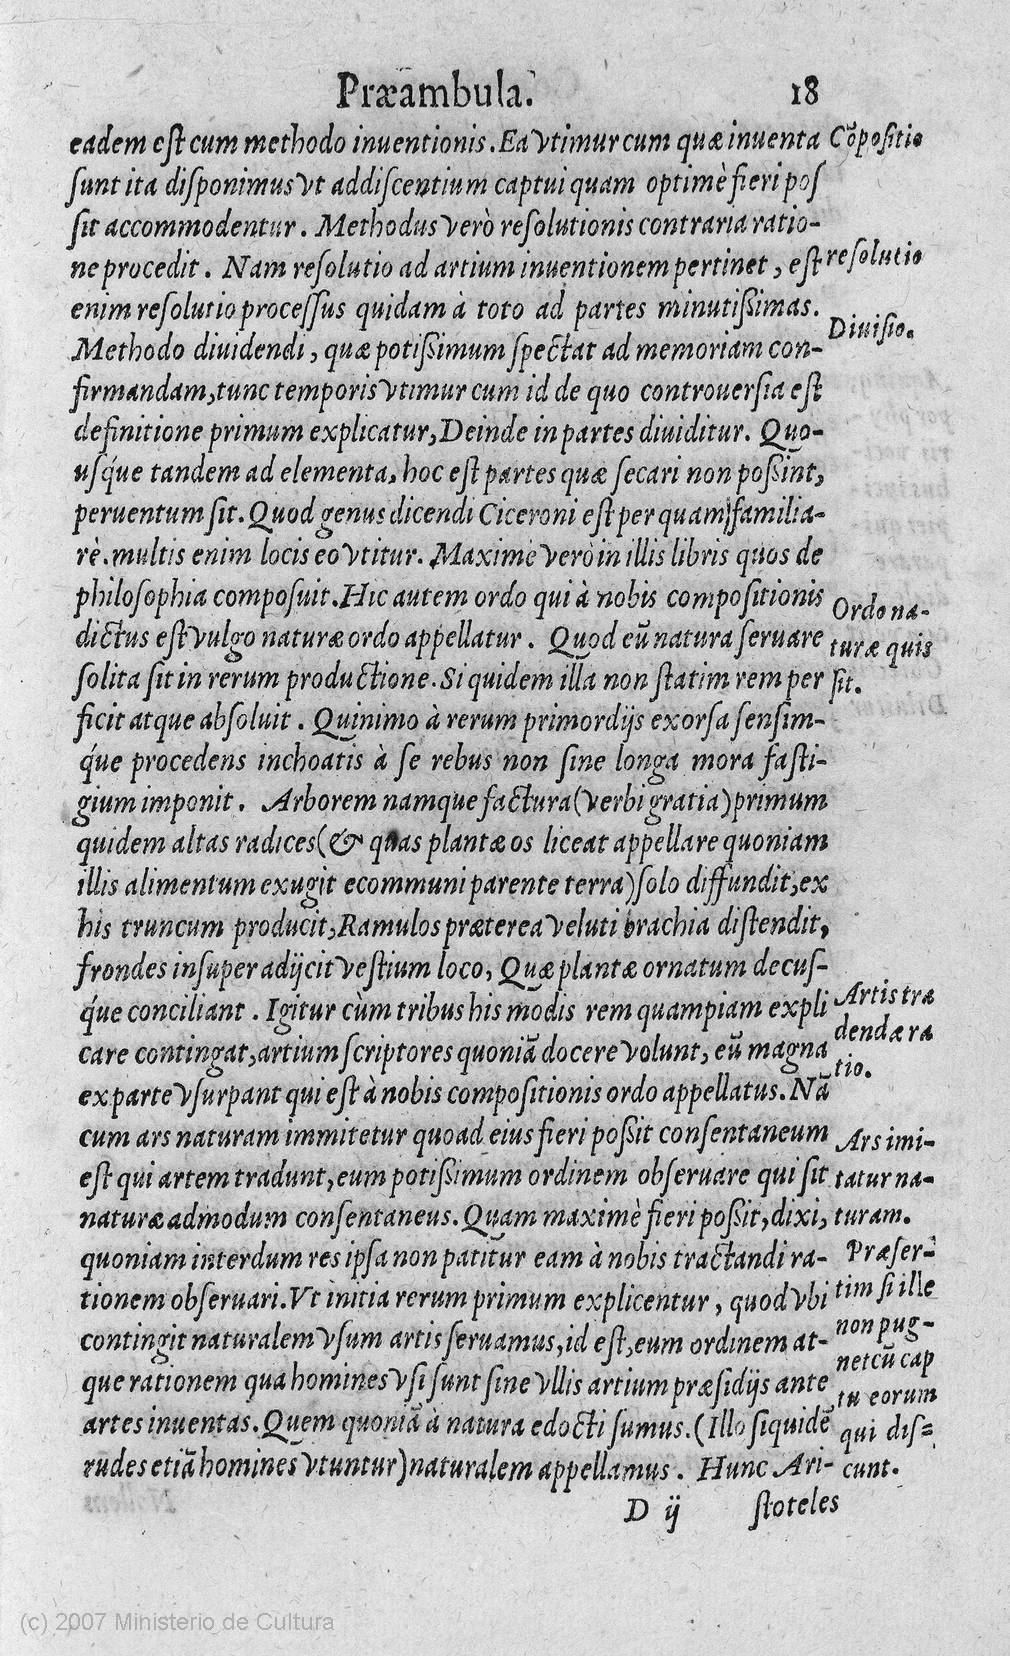 Præambula. 18
eadem est cum methodo inuentionis. Ea vtimur cum quæ inuenta
sunt ita disponimus vt addiscentium captui quam optimè fieri pos
sit accommodentur. Methodus verò resolutionis contraria ratio-
ne procedit. Nam resolutio ad artium inuentionem pertinet, est
enim resolutio processus quidam à toto ad partes minutissimas.
Methodo diuidendi, quæ potissimum spectat ad memoriam con-
firmandam, tunc temporis vtimur cum id de quo controuersia est
definitione primum explicatur, Deinde in partes diuiditur. Quo-
usq́ue tandem ad elementa, hoc est partes quæ secari non possint,
peruentum sit. Quod genus dicendi Ciceroni est per quam familia-
rè. multis enim locis eo vtitur. Maximè verò in illis libris quos de
philosophia composuit. Hic autem ordo qui à nobis compositionis
dictus est vulgo naturæ ordo appellatur. Quod eũ natura seruare
solita sit in rerum productione. Si quidem illa non statim rem per
ficit atque absoluit. Quinimo à rerum primordijs exorsa sensim-
q́ue procedens inchoatis à se rebus non sine longa mora fasti-
gium imponit. Arborem namque factura (verbi gratia) primum
quidem altas radices (& quas plantæ os liceat appellare quoniam
illis alimentum exugit ecommuni parente terra) solo diffundit, ex
his truncum producit, Ramulos præterea veluti brachia distendit,
frondes insuper adijcit vestium loco, Quæ plantæ ornatum decus-
q́ue conciliant. Igitur cùm tribus his modis rem quampiam expli
care contingat, artium scriptores quoniã docere volunt, eũ magna
ex parte vsurpant qui est à nobis compositionis ordo appellatus. Nã
cum ars naturam immitetur quoad eius fieri possit consentaneum
est qui artem tradunt, eum potissimum ordinem obseruare qui sit
naturæ admodum consentaneus. Quam maximè fieri possit, dixi,
quoniam interdum res ipsa non patitur eam à nobis tractandi ra-
tionem obseruari. Vt initia rerum primum explicentur, quod vbi
contingit naturalem vsum artis seruamus, id est, eum ordinem at-
que rationem qua homines vsi sunt sine vllis artium præsidijs ante
artes inuentas. Quem quoniã à natura edocti sumus. (Illo siquidẽ
rudes etiã homines vtuntur) naturalem appellamus. Hunc Ari-
D ij stoteles
Cõpositio
resolutio
Diuisio.
Ordo na-
turæ quis
sit.
Artis tra
dendæ ra
tio.
Ars imi-
tatur na-
turam.
Præser-
tim si ille
non pug-
net cũ cap
tu eorum
qui dis-
cunt.
(c) 2007 Ministerio de Cultura